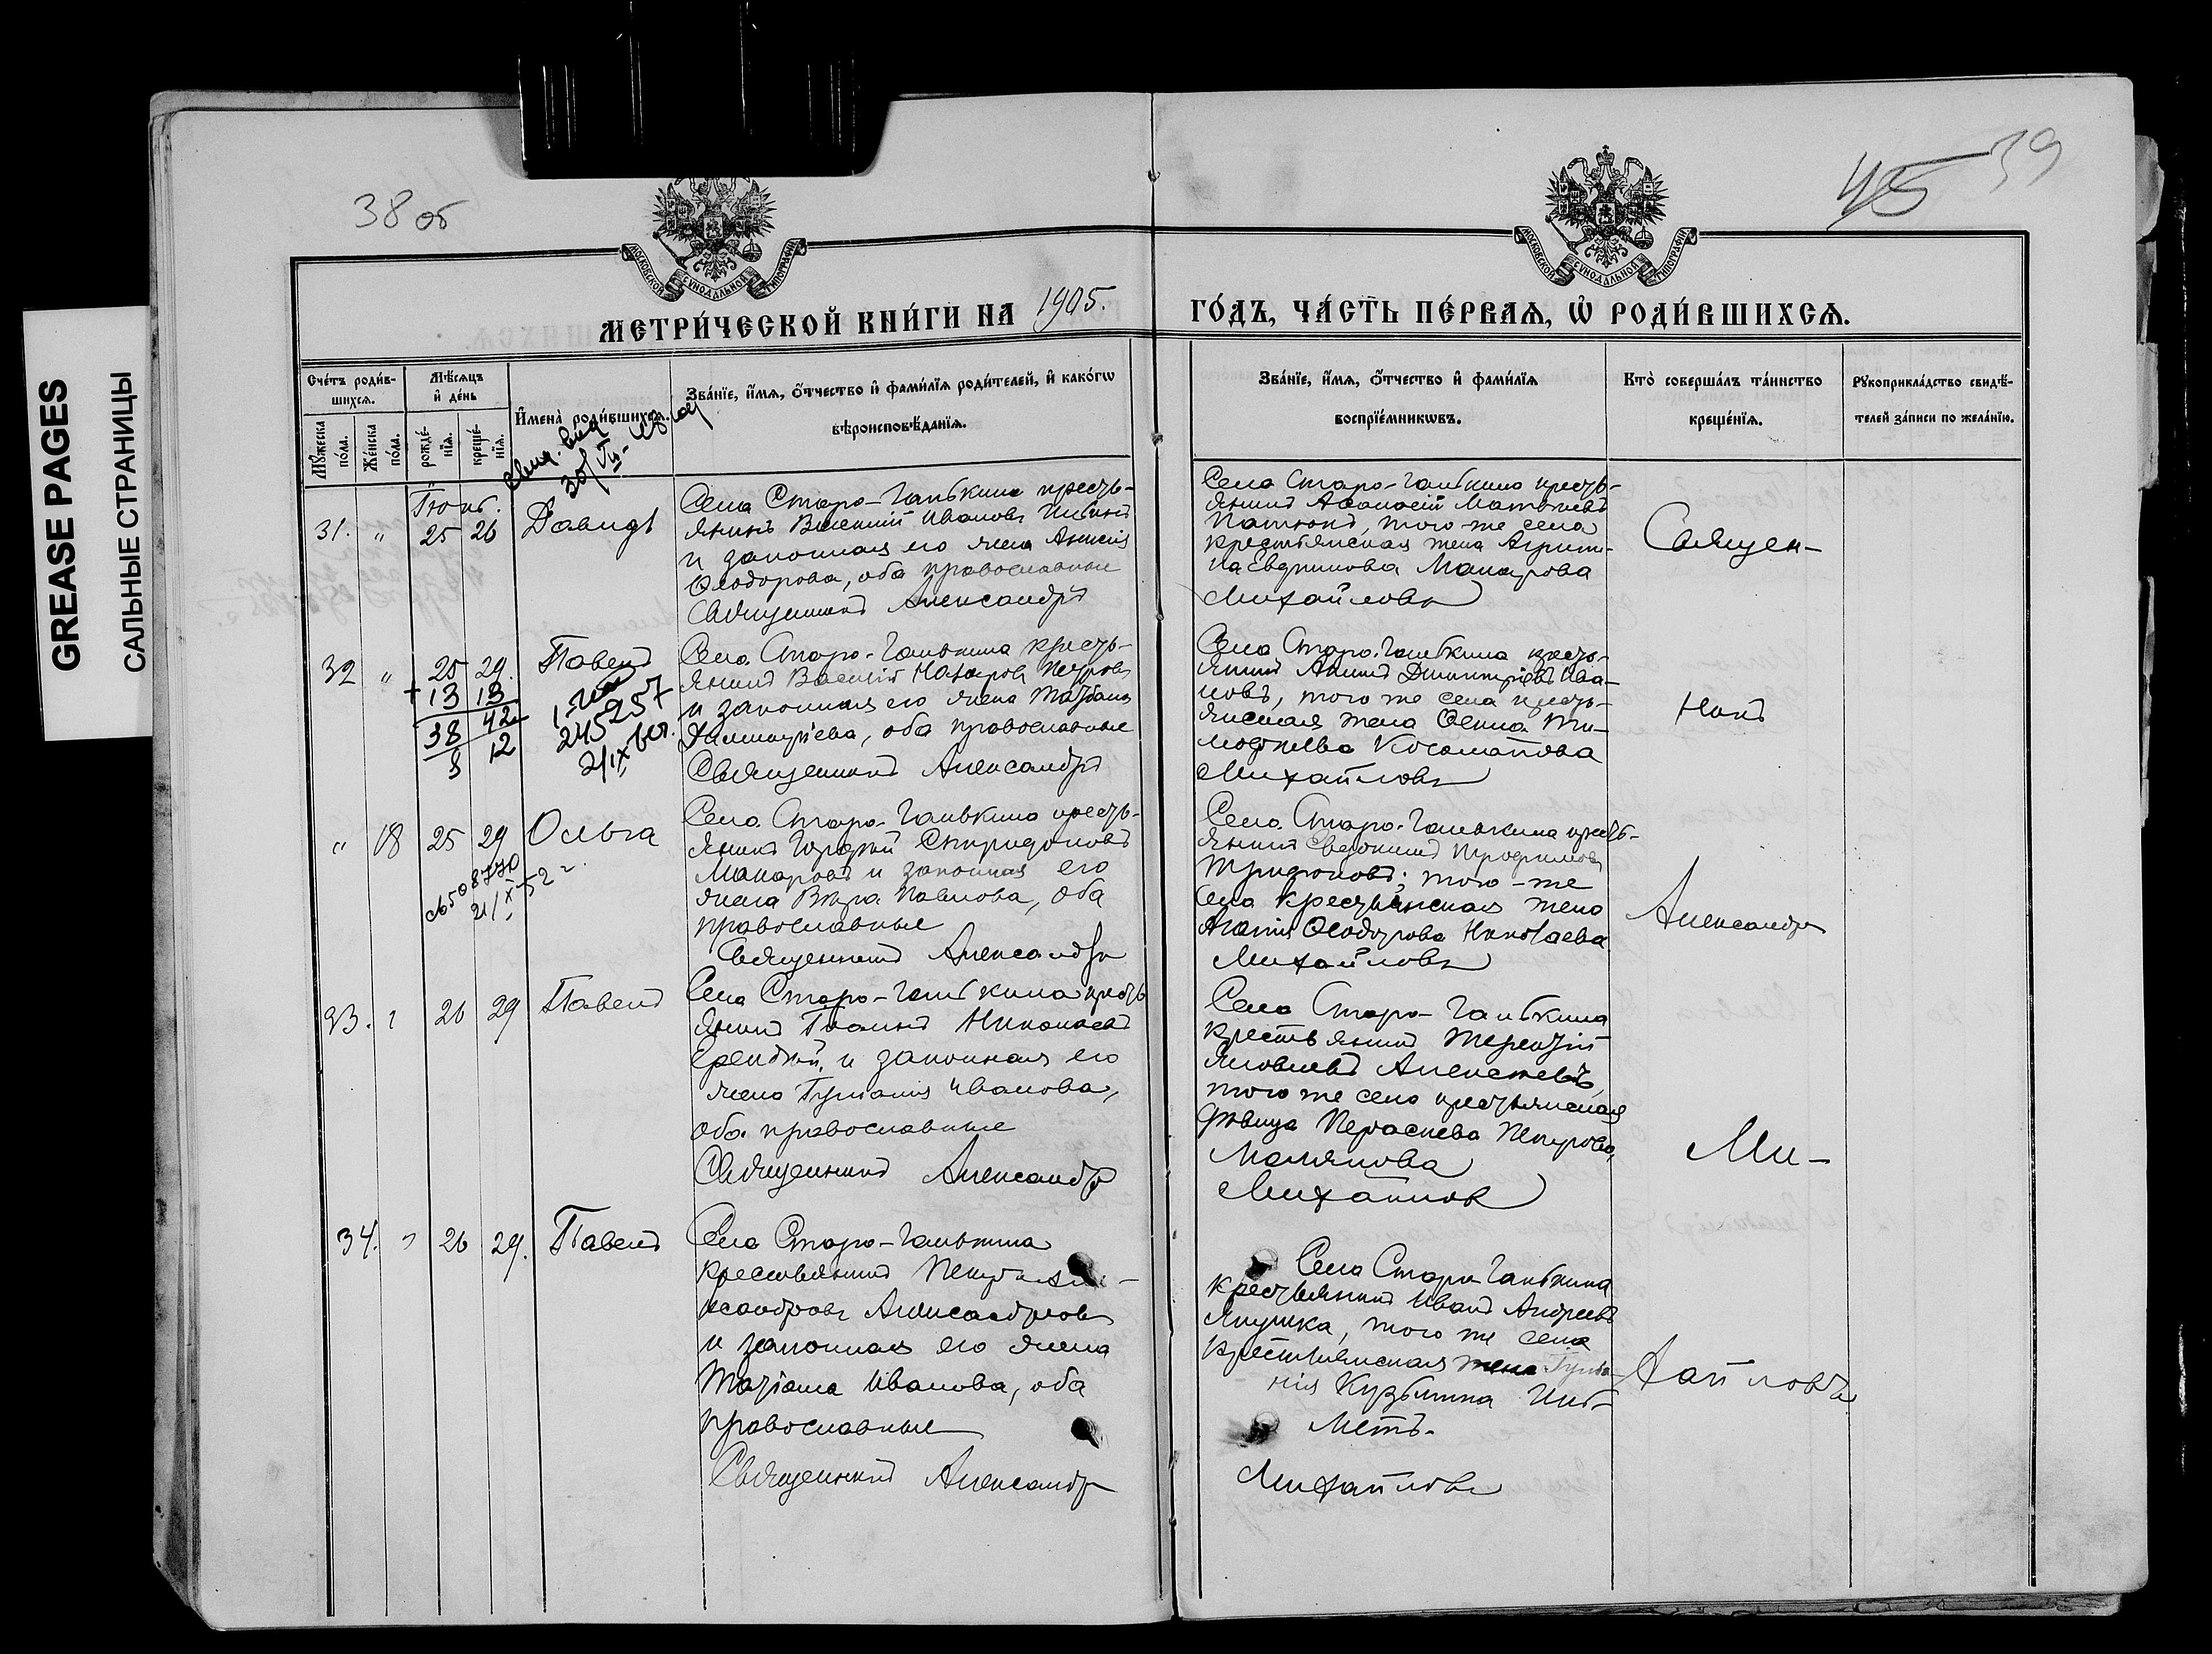 GREASE PAGES
САЛЬНЫЕ СТРАНИЦЫ
38 об
45 39
МОСКОВСКОЙ СѴНОДАЛЬНОЙ ТИПОГРАФІИ
МОСКОВСКОЙ СѴНОДАЛЬНОЙ ТИПОГРАФІИ
МЕТРИ́ЧЕСКОЙ КНИ́ГИ НА 1905.
ГО́ДЪ, ЧА́СТЬ ПЕ́РВАѦ, Ѡ҆ РОДИ́ВШИХСѦ.
Сче́тъ роди́в-
шихсѧ.
Мꙋ́жеска по́ла.
Же́нска по́ла.
Мѣ́сѧцъ
и҆ де́нь
рожде́-
нїѧ.
креще́-
нїѧ.
И҆мена̀ роди́вшихсѧ.
Зва́нїе, и҆́мѧ, ѻ҆́тчество и҆ фами́лїѧ роди́телей, и҆ како́гѡ
вѣроисповѣ́данїѧ.
Зва́нїе, и҆́мѧ, ѻ҆́тчество и҆ фами́лїѧ
воспрїе́мникѡвъ.
Кто̀ соверша́лъ та́инство
креще́нїѧ.
Рꙋкоприкла́дство свидѣ́-
телей за́писи по жела́нїю.
31. " Іюнь. 25 26 Давидъ
Села Старо-Ганькина кресть-
янинъ Василий Ивановъ
и законная его жена Анисія
Ѳеодорова, оба православные
Священникъ Александръ
Села Старо-Ганькина кресть-
янинъ Аѳанасій Матѳіевъ
того-же села
крестьянская жена Агрипи-
на Евдокимова Макарова
Михайловъ
Священ-
32 " 25 29. Павелъ
+13 13
38 42
8 12
245257
2/IX
Села Старо-Ганькина кресть-
янинъ Василій Назаровъ Петровъ
и законная его жена Татіана
Димитріева, оба православные
Священникъ Александръ
Села Старо-Ганькина кресть-
янинъ Димитріевъ Ива-
новъ, того же села кресть-
янская жена Ѳекла Ти-
моѳеева
Михайловъ
никъ
" 18 25 29 Ольга
св 508770
21/X-52 г.
Села Старо-Ганькина кресть-
янинъ Георгій Спиридоновъ
Макаровъ и законная его
жена Вѣра Павлова, оба
православные
Священникъ Александръ
Села Старо-Ганькина кресть-
янинъ Евдокимъ Трофимовъ
Трифоновъ; того-же
села крестьянская жена
Агаѳія Ѳеодорова Николаева
Михайловъ
Александръ
33. " 26 29 Павелъ
Села Старо-Ганькина кресть
янинъ Іоаннъ Николаевъ
и законная его
жена Гуліанія Иванова,
оба православные
Священникъ Александръ
Села Старо-Ганькина
крестьянинъ Терентій
Яковлевъ Алексѣевъ,
того же села крестьянская
дѣвица Параскева Петрова,
Михайловъ
Ми-
34. " 26 29. Павелъ
Села Старо-Ганькина
крестьянинъ
ксандровъ Александровъ
и законная его жена
Татіана Иванова, оба
православные
Священникъ Александръ
Села Старо-Ганькина
крестьянинъ Иванъ Андреевъ
Япушка, того же села
крестьянская жена Гулiа-
нія Кузьмина
Михайловъ
хайловъ